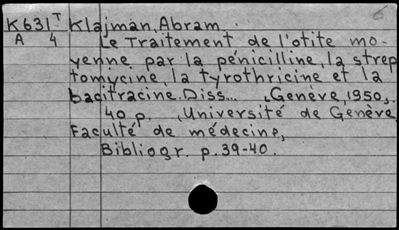 6
K631T Klajman, Abram.
A 4 Le Traitement de l'otite mo-
yenne par la pénicilline, la strep
tomycine, la tyrothricine et la
bacitracine. Diss... Genève, 1950,.
40 p. (Université de Genève,
Faculté de médecine,
Bibliogr. p.39-40.